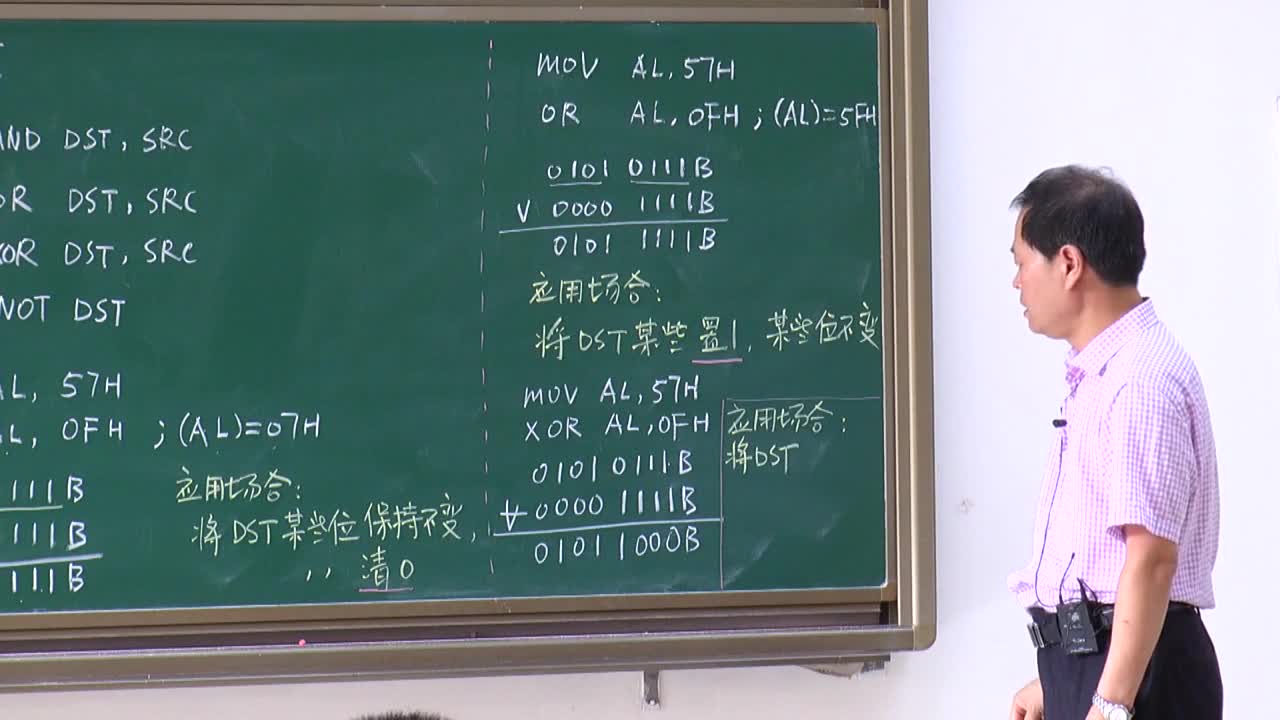 AND DST, SRC
OR DST, SRC
XOR DST, SRC
NOT DST
AL, 57H
AL, 0FH ; (AL)=07H
111B
111B
111B
应用场合:
将DST某些位保持不变,
〃 清0
MOV AL, 57H
OR AL, 0FH ; (AL)=5FH
0101 0111B
∨ 0000 1111B
0101 1111B
应用场合:
将DST某些置1, 某些位不变
MOV AL, 57H
XOR AL, 0FH
0101 0111B
⊻ 0000 1111B
0101 1000B
应用场合:
将DST